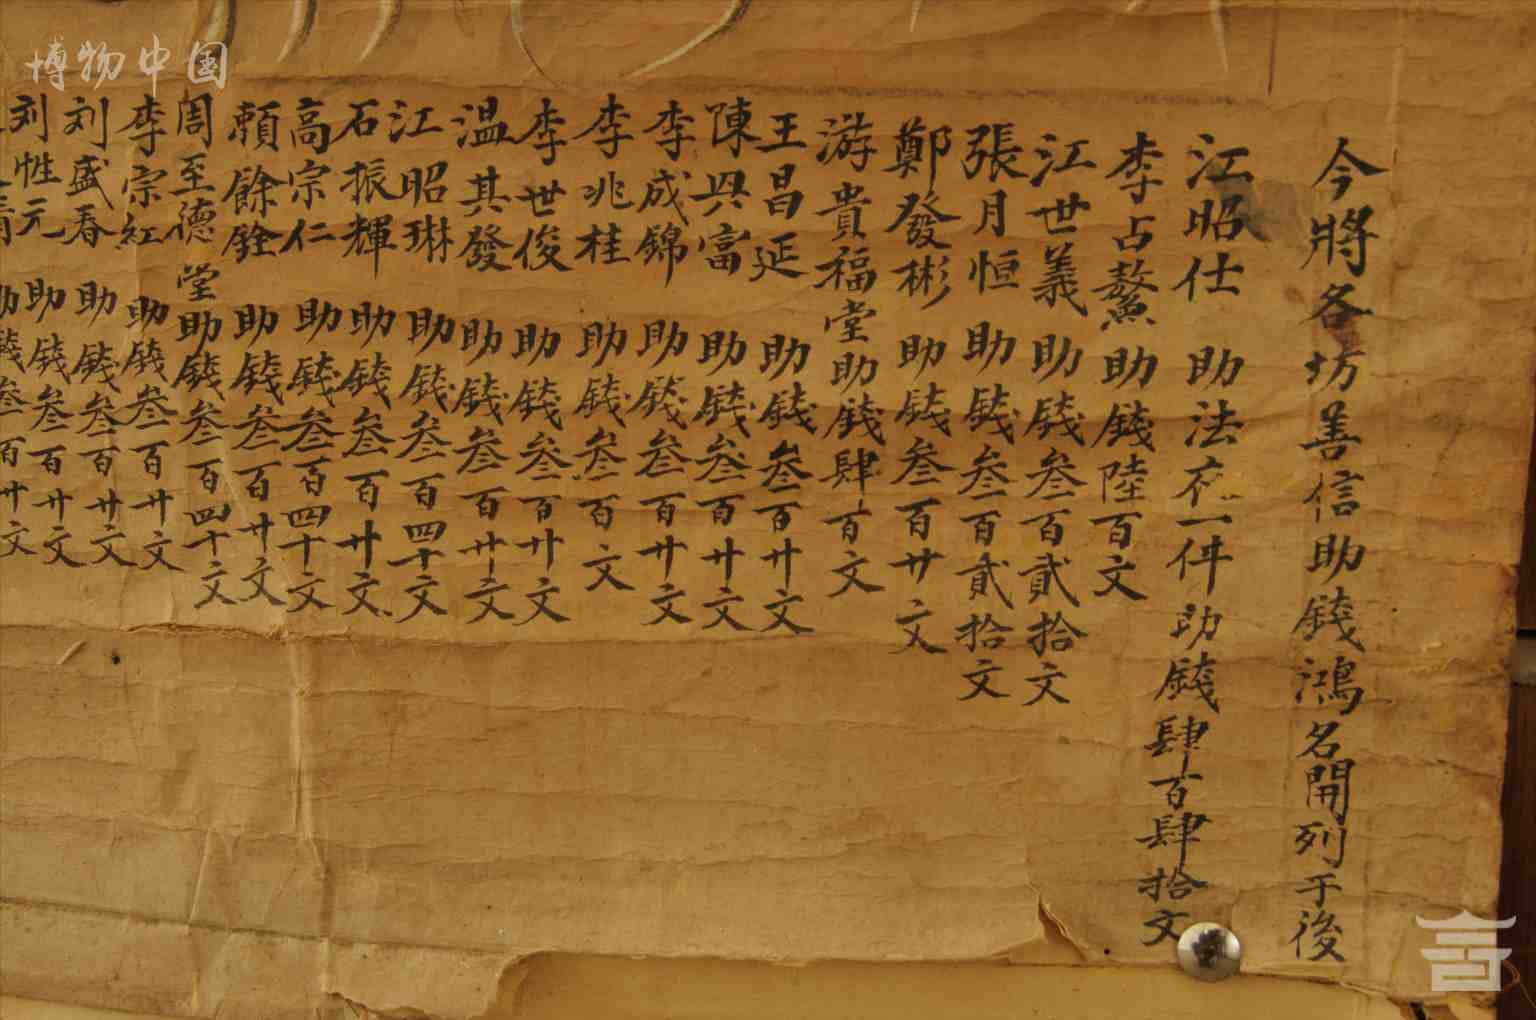 今將各坊善信助錢鴻名開列于後
江昭仕 助法衣一件助錢肆百肆拾文
李占鰲助錢陸百文
江世義 助錢叁百貳拾文
張月恒 助錢叁百貳拾文
鄭發彬 助錢叁百廿文
游貴福堂助錢肆百文
王昌延 助錢叁百廿文
陳興富 助錢叁百廿文
李成錦 助錢叁百廿文
李兆桂 助錢叁百文
李世俊 助錢叁百廿文
温其發 助錢叁百廿文
江昭琳 助錢叁百四十文
石振輝 助錢叁百廿文
高宗仁 助錢叁百四十文
賴餘銓 助錢叁百廿文
周至德堂助錢叁百四十文
李宗紅 助錢叁百廿文
刘盛春 助錢叁百廿文
刘性元 助錢叁百廿文
助錢叁百廿文
博物中国